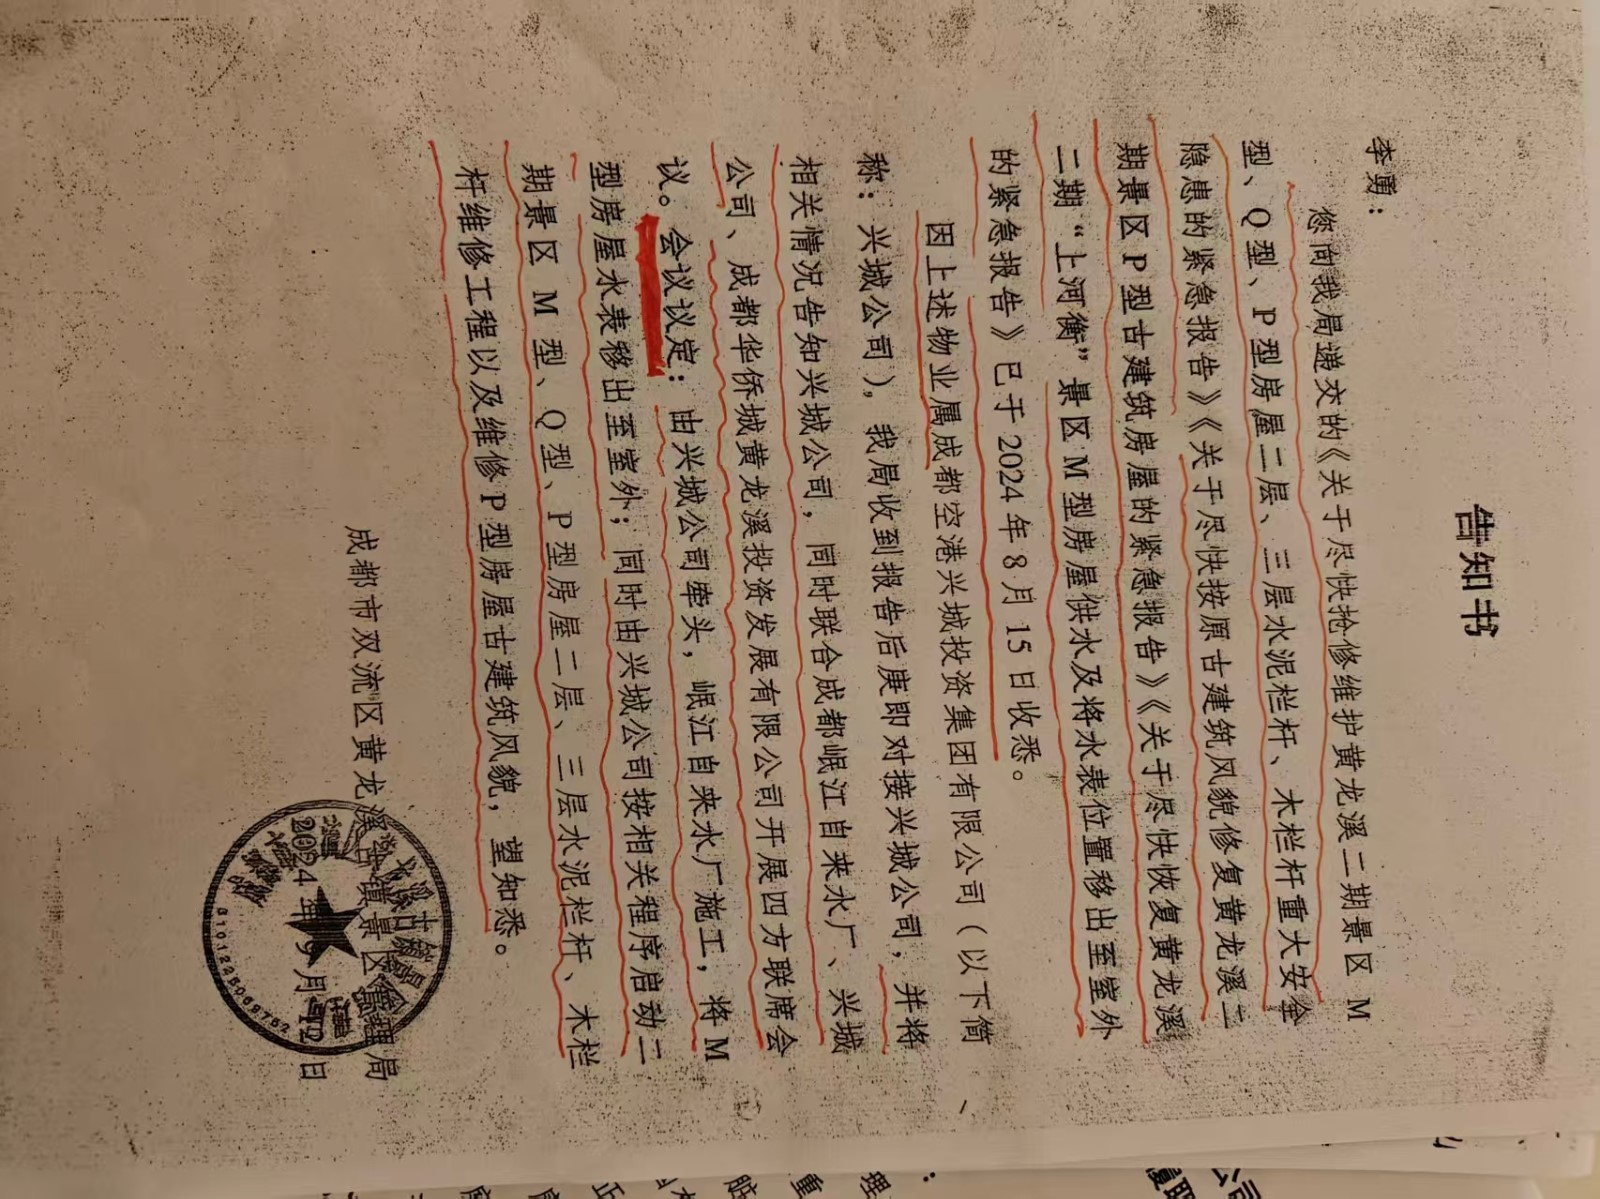 告知书
李勇：
您向我局递交的《关于尽快抢修维护黄龙溪二期景区 M
型、Q 型、P 型房屋二层、三层水泥栏杆、木栏杆重大安全
隐患的紧急报告》《关于尽快按原古建筑风貌修复黄龙溪二
期景区 P 型古建筑房屋的紧急报告》《关于尽快恢复黄龙溪
二期“上河衡”景区 M 型房屋供水及将水表位置移出至室外
的紧急报告》已于 2024 年 8 月 15 日收悉。
因上述物业属成都空港兴城投资集团有限公司（以下简
称：兴城公司），我局收到报告后庚即对接兴城公司，并将
相关情况告知兴城公司，同时联合成都岷江自来水厂、兴城
公司、成都华侨城黄龙溪投资发展有限公司开展四方联席会
议。会议议定：由兴城公司牵头，岷江自来水厂施工，将 M
型房屋水表移出至室外；同时由兴城公司按相关程序启动二
期景区 M 型、Q 型、P 型房屋二层、三层水泥栏杆、木栏
杆维修工程以及维修 P 型房屋古建筑风貌，望知悉。
成都市双流区黄龙溪古镇景区管理局
2024 年 9 月 12 日